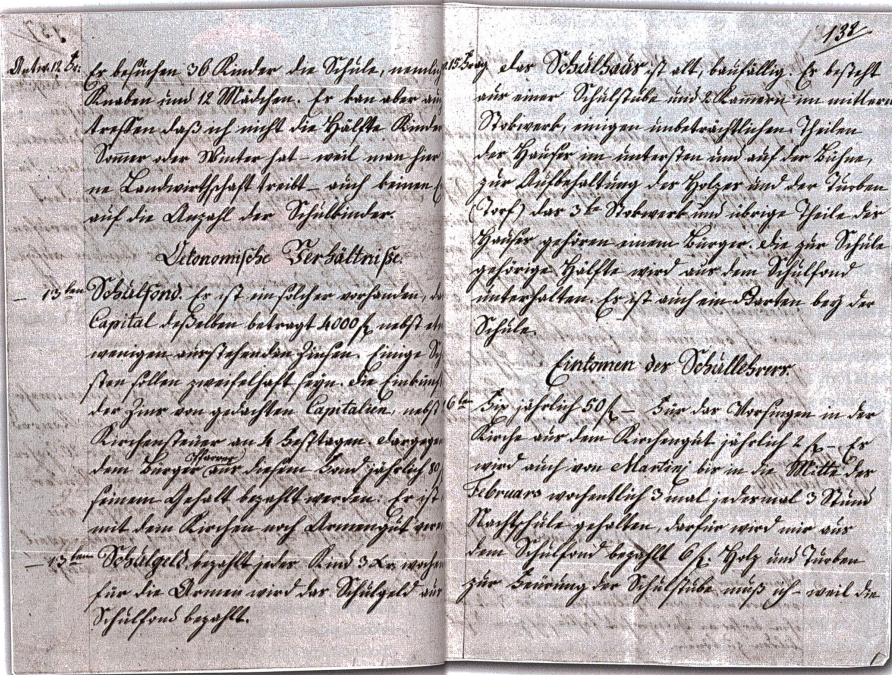 132
Antw. 12 Fr.
Er besuchen 36 Kinder die Schule, nemlich
Knaben und 12 Mädchen. Er kan aber
treffen daß ich nicht die Hälfte Kinder
Sommer oder Winter hat – weil man hier
ne Landwirthschaft treibt – auch keinen
auf die Anzahl der Schulkinder.
Oekonomische Verhältniße.
– 13ten Schulfond. Er ist ein solcher vorhanden,
Capital deßelben betragt 4000 f. nebst
wenigen ausstehenden Zinsen. Einige
sten sollen zweifelhaft seyn. Die
der Zins von gedachten Capitalien, nebst
Kirchensteuer an 4 Festtagen. Dargegen
dem Bürger Pfarrer aus diesem Fond jährlich 80
seinem Gehalt bezahlt werden. Er ist
mit dem Kirchen noch Armengut
– 13ten Schulgeld bezahlt jedes Kind 3 Kr.
für die Armen wird das Schulgeld aus
Schulfond bezahlt.
138
15 Frag Das Schulhaus ist alt, baufällig. Er besteht
aus einer Schulstube und 2 Kamern im mittern
Stokwerk, einigen unbeträchtlichen Theilen
des Hauses im untersten und auf der Bühne,
zur Aufbehaltung des Holzes und der Turben
(Torf) das 3te Stokwerk und übrige Theile des
Hauses gehören einem Bürger. Die zur Schule
gehörige Hälfte wird aus dem Schulfond
unterhalten. Er ist auch ein Garten bey der
Schule.
Einkomen des Schullehrers.
16ten Fix jährlich 50 f. – Für das Vorsingen in der
Kirche aus dem Kirchengut jährlich 2 f. – Er
wird auch von Martinj bis in die Mitte des
Februars wochentlich 3 mal jedesmal 3 Stund
Nachtschule gehalten, darfür wird mir aus
dem Schulfond bezahlt 6 f. Holz und Turben
zur Feurung der Schulstube muß ich – weil die